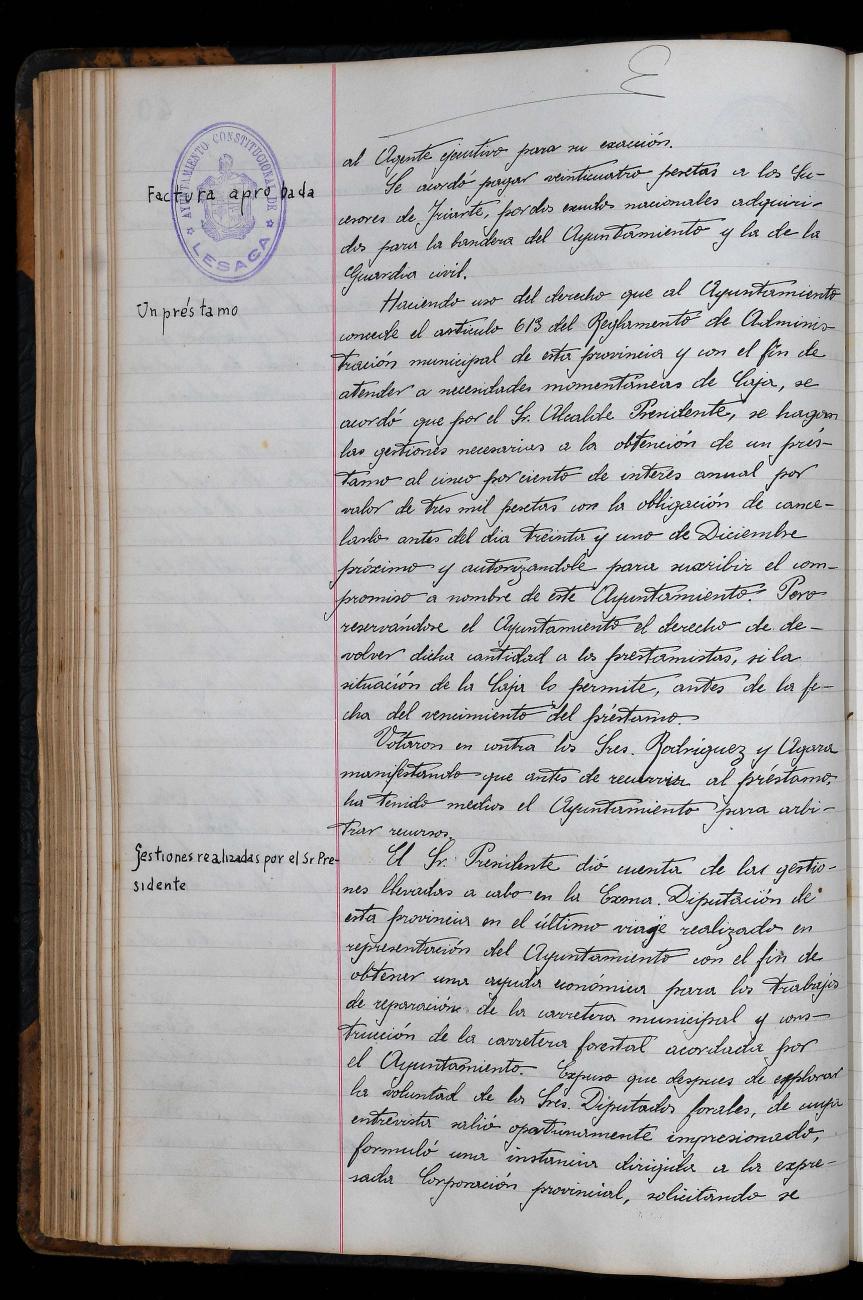 al Agente ejecutivo para su exacción.
AYUNTAMIENTO CONSTITUCIONAL DE
LESACA
Factura aprobada
Se acordó pagar veinticuatro pesetas a los Su-
cesores de Iriarte, por dos escudos nacionales adquiri-
dos para la bandera del Ayuntamiento y la de la
Guardia civil.
Un préstamo
Haciendo uso del derecho que al Ayuntamiento
concede el artículo 613 del Reglamento de Adminis-
tración municipal de esta provincia y con el fin de
atender a necesidades momentáneas de Caja, se
acordó que por el Sr. Alcalde Presidente, se hagan
las gestiones necesarias a la obtención de un prés-
tamo al cinco por ciento de interés anual por
valor de tres mil pesetas con la obligación de cance-
larlo antes del dia treinta y uno de Diciembre
próximo y autorizandole para suscribir el com-
promiso a nombre de este Ayuntamiento. Pero
reservándose el Ayuntamiento el derecho de de-
volver dicha cantidad a los prestamistas, si la
situación de la Caja lo permite, antes de la fe-
cha del vencimiento del préstamo.
Votaron en contra los Sres. Rodriguez y Agara
manifestando que antes de recurrir al préstamo,
ha tenido medios el Ayuntamiento para arbi-
trar recursos.
Gestiones realizadas por el Sr Pre-
sidente
El Sr. Presidente dió cuenta de las gestio-
nes llevadas a cabo en la Exma. Diputación de
esta provincia en el último viaje realizado en
representación del Ayuntamiento con el fin de
obtener una ayuda económica para los trabajos
de reparación de la carretera municipal y cons-
trucción de la carretera forestal acordada por
el Ayuntamiento. Expuso que despues de explorar
la voluntad de los Sres. Diputados forales, de cuya
entrevista salió oportunamente impresionado,
formuló una instancia dirigida a la expre-
sada Corporación provincial, solicitando se